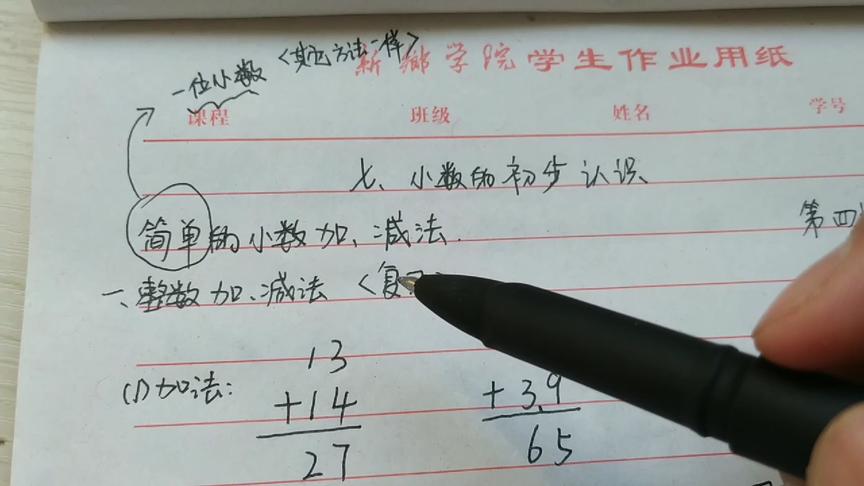 一位小数〈其它方法一样〉
新鄉学院学生作业用纸
课程 班级 姓名 学号
七、小数的初步认识
简单的小数加、减法.
第四
一、整数加、减法〈复
(1)加法:
13
+14
27
+39
65